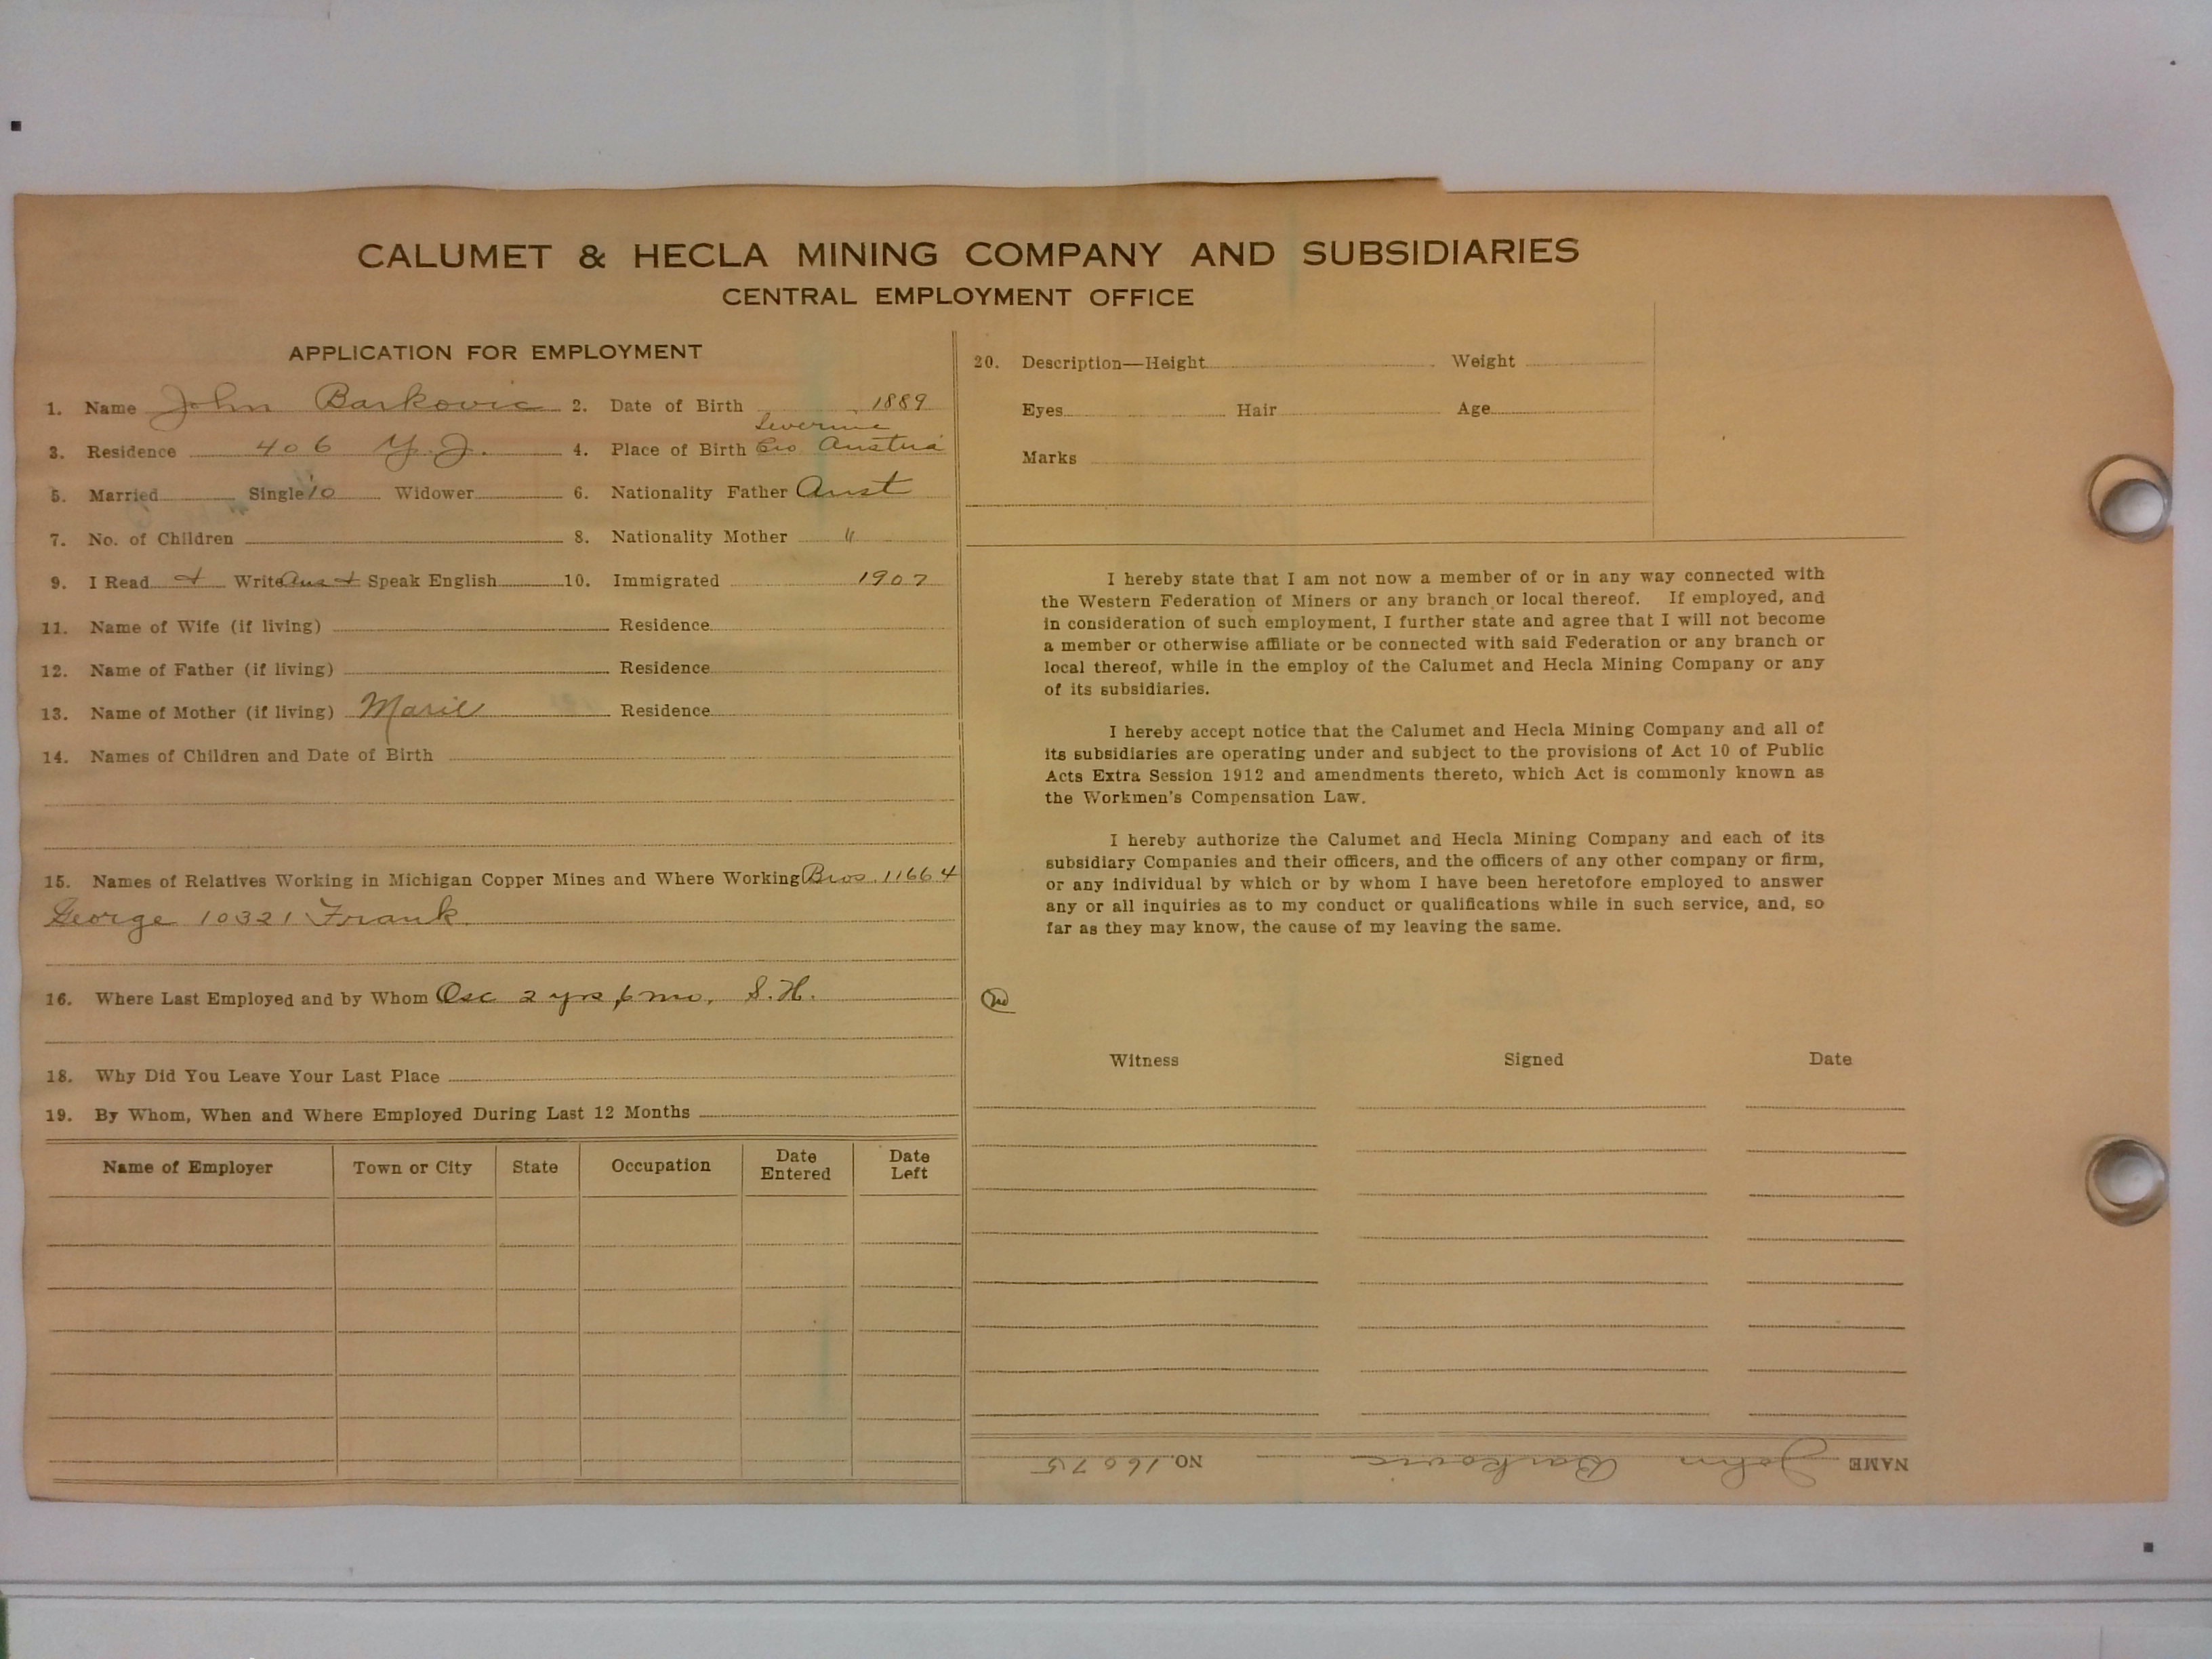 CALUMET & HECLA MINING COMPANY AND SUBSIDIARIES
CENTRAL EMPLOYMENT OFFICE
APPLICATION FOR EMPLOYMENT
1. Name John Barkovic 2. Date of Birth 1889
3. Residence 406 Y.J. 4. Place of Birth Austria
5. Married Single '10 Widower 6. Nationality Father Aust
7. No. of Children 8. Nationality Mother "
9. I Read + Write Aus + Speak English 10. Immigrated 1907
11. Name of Wife (if living) Residence
12. Name of Father (if living) Residence
13. Name of Mother (if living) Marie Residence
14. Names of Children and Date of Birth
15. Names of Relatives Working in Michigan Copper Mines and Where Working Bros. 11664
George 10321 Frank
16. Where Last Employed and by Whom Osc 2 yrs 6 mo. S.H.
18. Why Did You Leave Your Last Place
19. By Whom, When and Where Employed During Last 12 Months
Name of Employer Town or City State Occupation Date Entered Date Left
20. Description—Height Weight
Eyes Hair Age
Marks
I hereby state that I am not now a member of or in any way connected with
the Western Federation of Miners or any branch or local thereof. If employed, and
in consideration of such employment, I further state and agree that I will not become
a member or otherwise affiliate or be connected with said Federation or any branch or
local thereof, while in the employ of the Calumet and Hecla Mining Company or any
of its subsidiaries.
I hereby accept notice that the Calumet and Hecla Mining Company and all of
its subsidiaries are operating under and subject to the provisions of Act 10 of Public
Acts Extra Session 1912 and amendments thereto, which Act is commonly known as
the Workmen's Compensation Law.
I hereby authorize the Calumet and Hecla Mining Company and each of its
subsidiary Companies and their officers, and the officers of any other company or firm,
or any individual by which or by whom I have been heretofore employed to answer
any or all inquiries as to my conduct or qualifications while in such service, and, so
far as they may know, the cause of my leaving the same.
Witness Signed Date
NAME John Barkovic NO. 16075